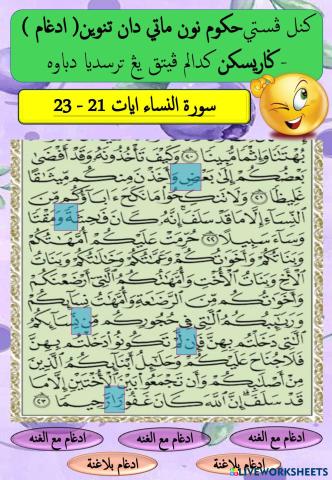 كنل ڤستي حكوم نون ماتي دان تنوين( ادغام )
- ݢاريسكن كدالم ڤيتق يڠ ترسديا دباوه
سورة النساء ايات 21 - 23
بُهْتَٰنًا وَإِثْمًا مُّبِينًا ٢٠ وَكَيْفَ تَأْخُذُونَهُۥ وَقَدْ أَفْضَىٰ
بَعْضُكُمْ إِلَىٰ بَعْضٍ وَأَخَذْنَ مِنكُم مِّيثَٰقًا
غَلِيظًا ٢١ وَلَا تَنكِحُوا۟ مَا نَكَحَ ءَابَآؤُكُم مِّنَ
ٱلنِّسَآءِ إِلَّا مَا قَدْ سَلَفَ إِنَّهُۥ كَانَ فَٰحِشَةً وَمَقْتًا
وَسَآءَ سَبِيلًا ٢٢ حُرِّمَتْ عَلَيْكُمْ أُمَّهَٰتُكُمْ
وَبَنَاتُكُمْ وَأَخَوَٰتُكُمْ وَعَمَّٰتُكُمْ وَخَٰلَٰتُكُمْ وَبَنَاتُ
ٱلْأَخِ وَبَنَاتُ ٱلْأُخْتِ وَأُمَّهَٰتُكُمُ ٱلَّٰتِىٓ أَرْضَعْنَكُمْ
وَأَخَوَٰتُكُم مِّنَ ٱلرَّضَٰعَةِ وَأُمَّهَٰتُ نِسَآئِكُمْ
وَرَبَٰٓئِبُكُمُ ٱلَّٰتِى فِى حُجُورِكُم مِّن نِّسَآئِكُمُ
ٱلَّٰتِى دَخَلْتُم بِهِنَّ فَإِن لَّمْ تَكُونُوا۟ دَخَلْتُم بِهِنَّ
فَلَا جُنَاحَ عَلَيْكُمْ وَحَلَٰٓئِلُ أَبْنَآئِكُمُ ٱلَّذِينَ
مِنْ أَصْلَٰبِكُمْ وَأَن تَجْمَعُوا۟ بَيْنَ ٱلْأُخْتَيْنِ إِلَّا مَا
قَدْ سَلَفَ إِنَّ ٱللَّهَ كَانَ غَفُورًا رَّحِيمًا ٢٣
ادغام مع الغنه ادغام مع الغنه ادغام مع الغنه
ادغام بلاغنة ادغام بلاغنة
LIVEWORKSHEETS